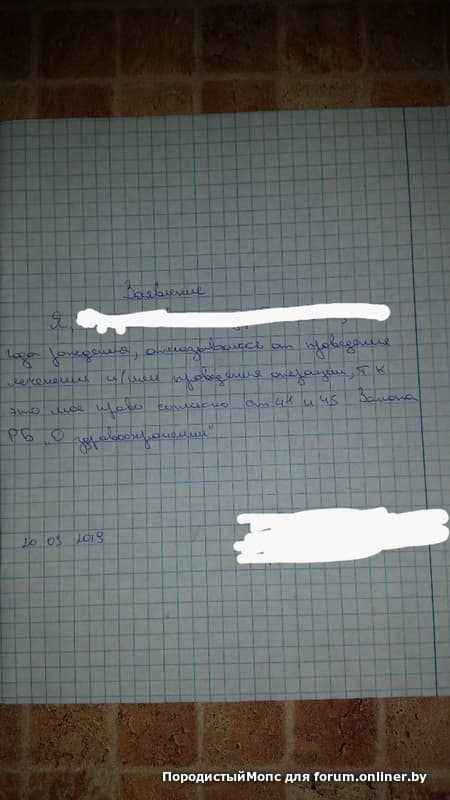 Заявление
Я,
года рождения, отказываюсь от проведения
лечения и/или проведения операции, т к
это мое право согласно ст 41 и 45 Закона
РБ „О здравоохранении"
20 03 2019
ПородистыйМопс для forum.onliner.by